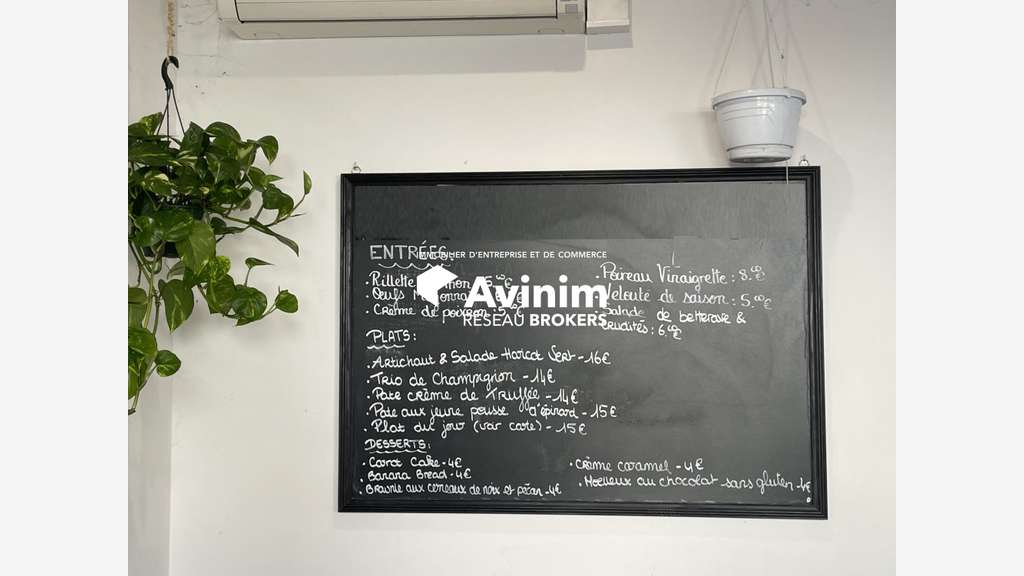 ENTRÉES:
IMMOBILIER D'ENTREPRISE ET DE COMMERCE
. Rillette
. Œufs
. Crème de poisson : 5.
. Poireau Vinaigrette : 8.00€
Veloute de saison : 5.00€
Salade de betterave &
crudités : 6.00€
Avinim
RESEAU BROKERS
PLATS :
. Artichaut & Salade Haricot Vert - 16€
. Trio de Champignon - 14€
. Pate crème de Truffée - 14€
. Pate aux jeune pousse d'épinard - 15€
. Plat du jour (voir carte) - 15€
DESSERTS :
. Carot Cake - 4€
. Banana Bread - 4€
. Brownie aux cereaux de noix et pécan - 4€
. Crème caramel - 4€
. Moelleux au chocolat sans gluten - 4€